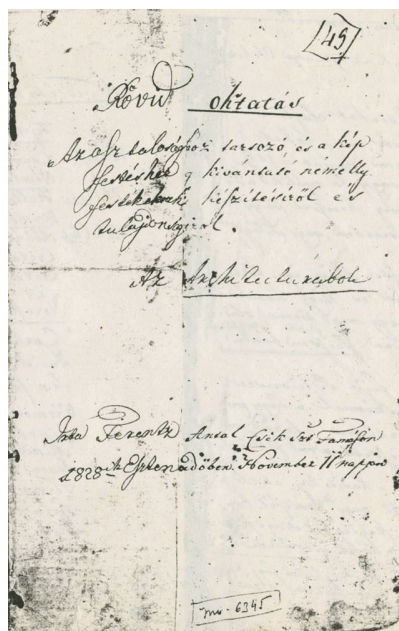 (49)
Rövid oktatás
Az asztalosághoz tartozó, és a kép
festéshez kivántató némelly
festékeknek készítésiről és
tulajdonságiról.
Az Architecturából
Irta Ferentz Antal Csik Szt Tamáson
1828ik Esztendőben November 11 napján
mv. 6345